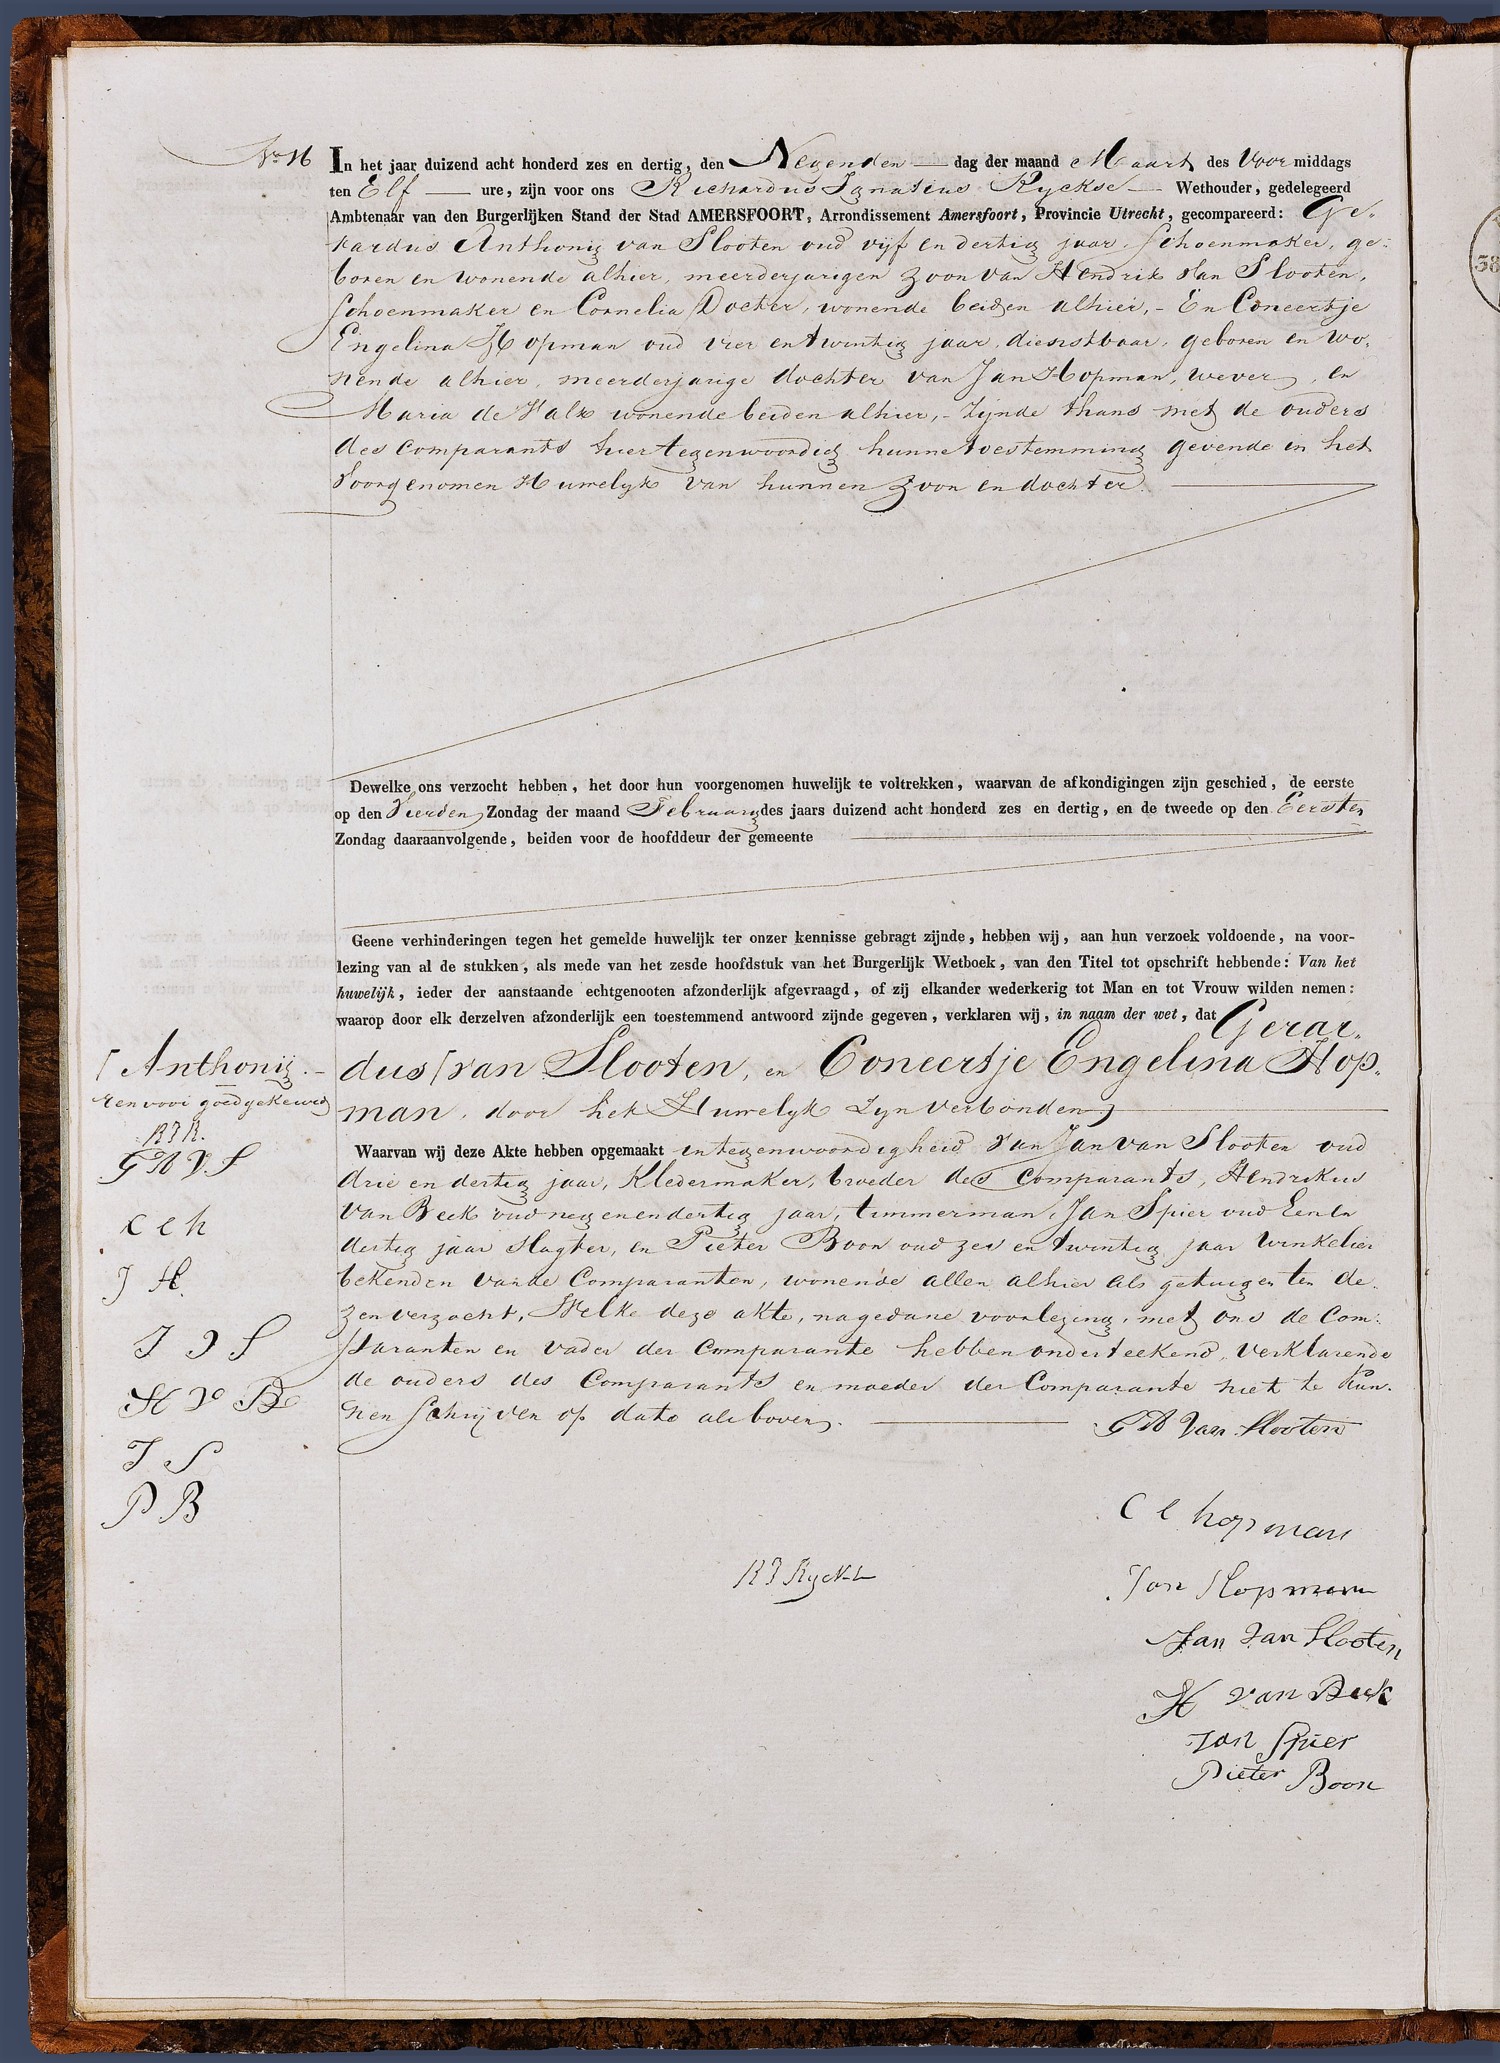 No 16
In het jaar duizend acht honderd zes en dertig, den Negenden dag der maand Maart des Voor middags
ten Elf ure, zijn voor ons Richardus Ignatius Ryckse Wethouder, gedelegeerd
Ambtenaar van den Burgerlijken Stand der Stad AMERSFOORT, Arrondissement Amersfoort, Provincie Utrecht, gecompareerd: Ge-
rardus Anthonij van Slooten oud vijf en dertig jaar, Schoenmaker, ge-
boren en wonende alhier, meerderjarigen zoon van Hendrik van Slooten,
Schoenmaker en Cornelia Docter, wonende beiden alhier, - En Coneertje
Engelina Hopman oud vier en twintig jaar, dienstbaar, geboren en wo-
nende alhier, meerderjarige dochter van Jan Hopman, wever, en
Maria de Valk wonende beiden alhier, - zijnde thans met de ouders
des Comparants hier tegenwoordig hunne toestemming gevende in het
voorgenomen Huwelyk van hunnen zoon en dochter.
Dewelke ons verzocht hebben, het door hun voorgenomen huwelijk te voltrekken, waarvan de afkondigingen zijn geschied, de eerste
op den Vierden Zondag der maand February des jaars duizend acht honderd zes en dertig, en de tweede op den Eersten
Zondag daaraanvolgende, beiden voor de hoofddeur der gemeente
Geene verhinderingen tegen het gemelde huwelijk ter onzer kennisse gebragt zijnde, hebben wij, aan hun verzoek voldoende, na voor-
lezing van al de stukken, als mede van het zesde hoofdstuk van het Burgerlijk Wetboek, van den Titel tot opschrift hebbende: Van het
huwelijk, ieder der aanstaande echtgenooten afzonderlijk afgevraagd, of zij elkander wederkerig tot Man en tot Vrouw wilden nemen:
waarop door elk derzelven afzonderlijk een toestemmend antwoord zijnde gegeven, verklaren wij, in naam der wet, dat Gerar-
dus [van Slooten, en Coneertje Engelina Hop-
man, door het Huwelyk zyn verbonden
Waarvan wij deze Akte hebben opgemaakt in tegenwoordigheid van Jan van Slooten oud
drie en dertig jaar, Kledermaker, broeder des Comparants, Hendrikus
van Beek oud negenendertig jaar, timmerman, Jan Spier oud Een en
dertig jaar slagter, en Pieter Boon oud zes en twintig jaar winkelier
bekenden van de Comparanten, wonende allen alhier als getuigen ten de-
zen verzocht, Welke deze akte, na gedane voorlezing, met ons de Com-
paranten en vader der Comparante hebben onderteekend, verklarende
de ouders des Comparants en moeder der Comparante niet te kun-
nen schrijven op dato als boven.
[Anthonij.
renvooi goedgekeurd
R I R.
G A V. S
C e h
J H.
J V S
H V B
J S
P B
G A van Slooten
C e hopman
Jan Hopman
R I Ryckse
Jan van Slooten
H van Beek
Jan Spier
Pieter Boon
38